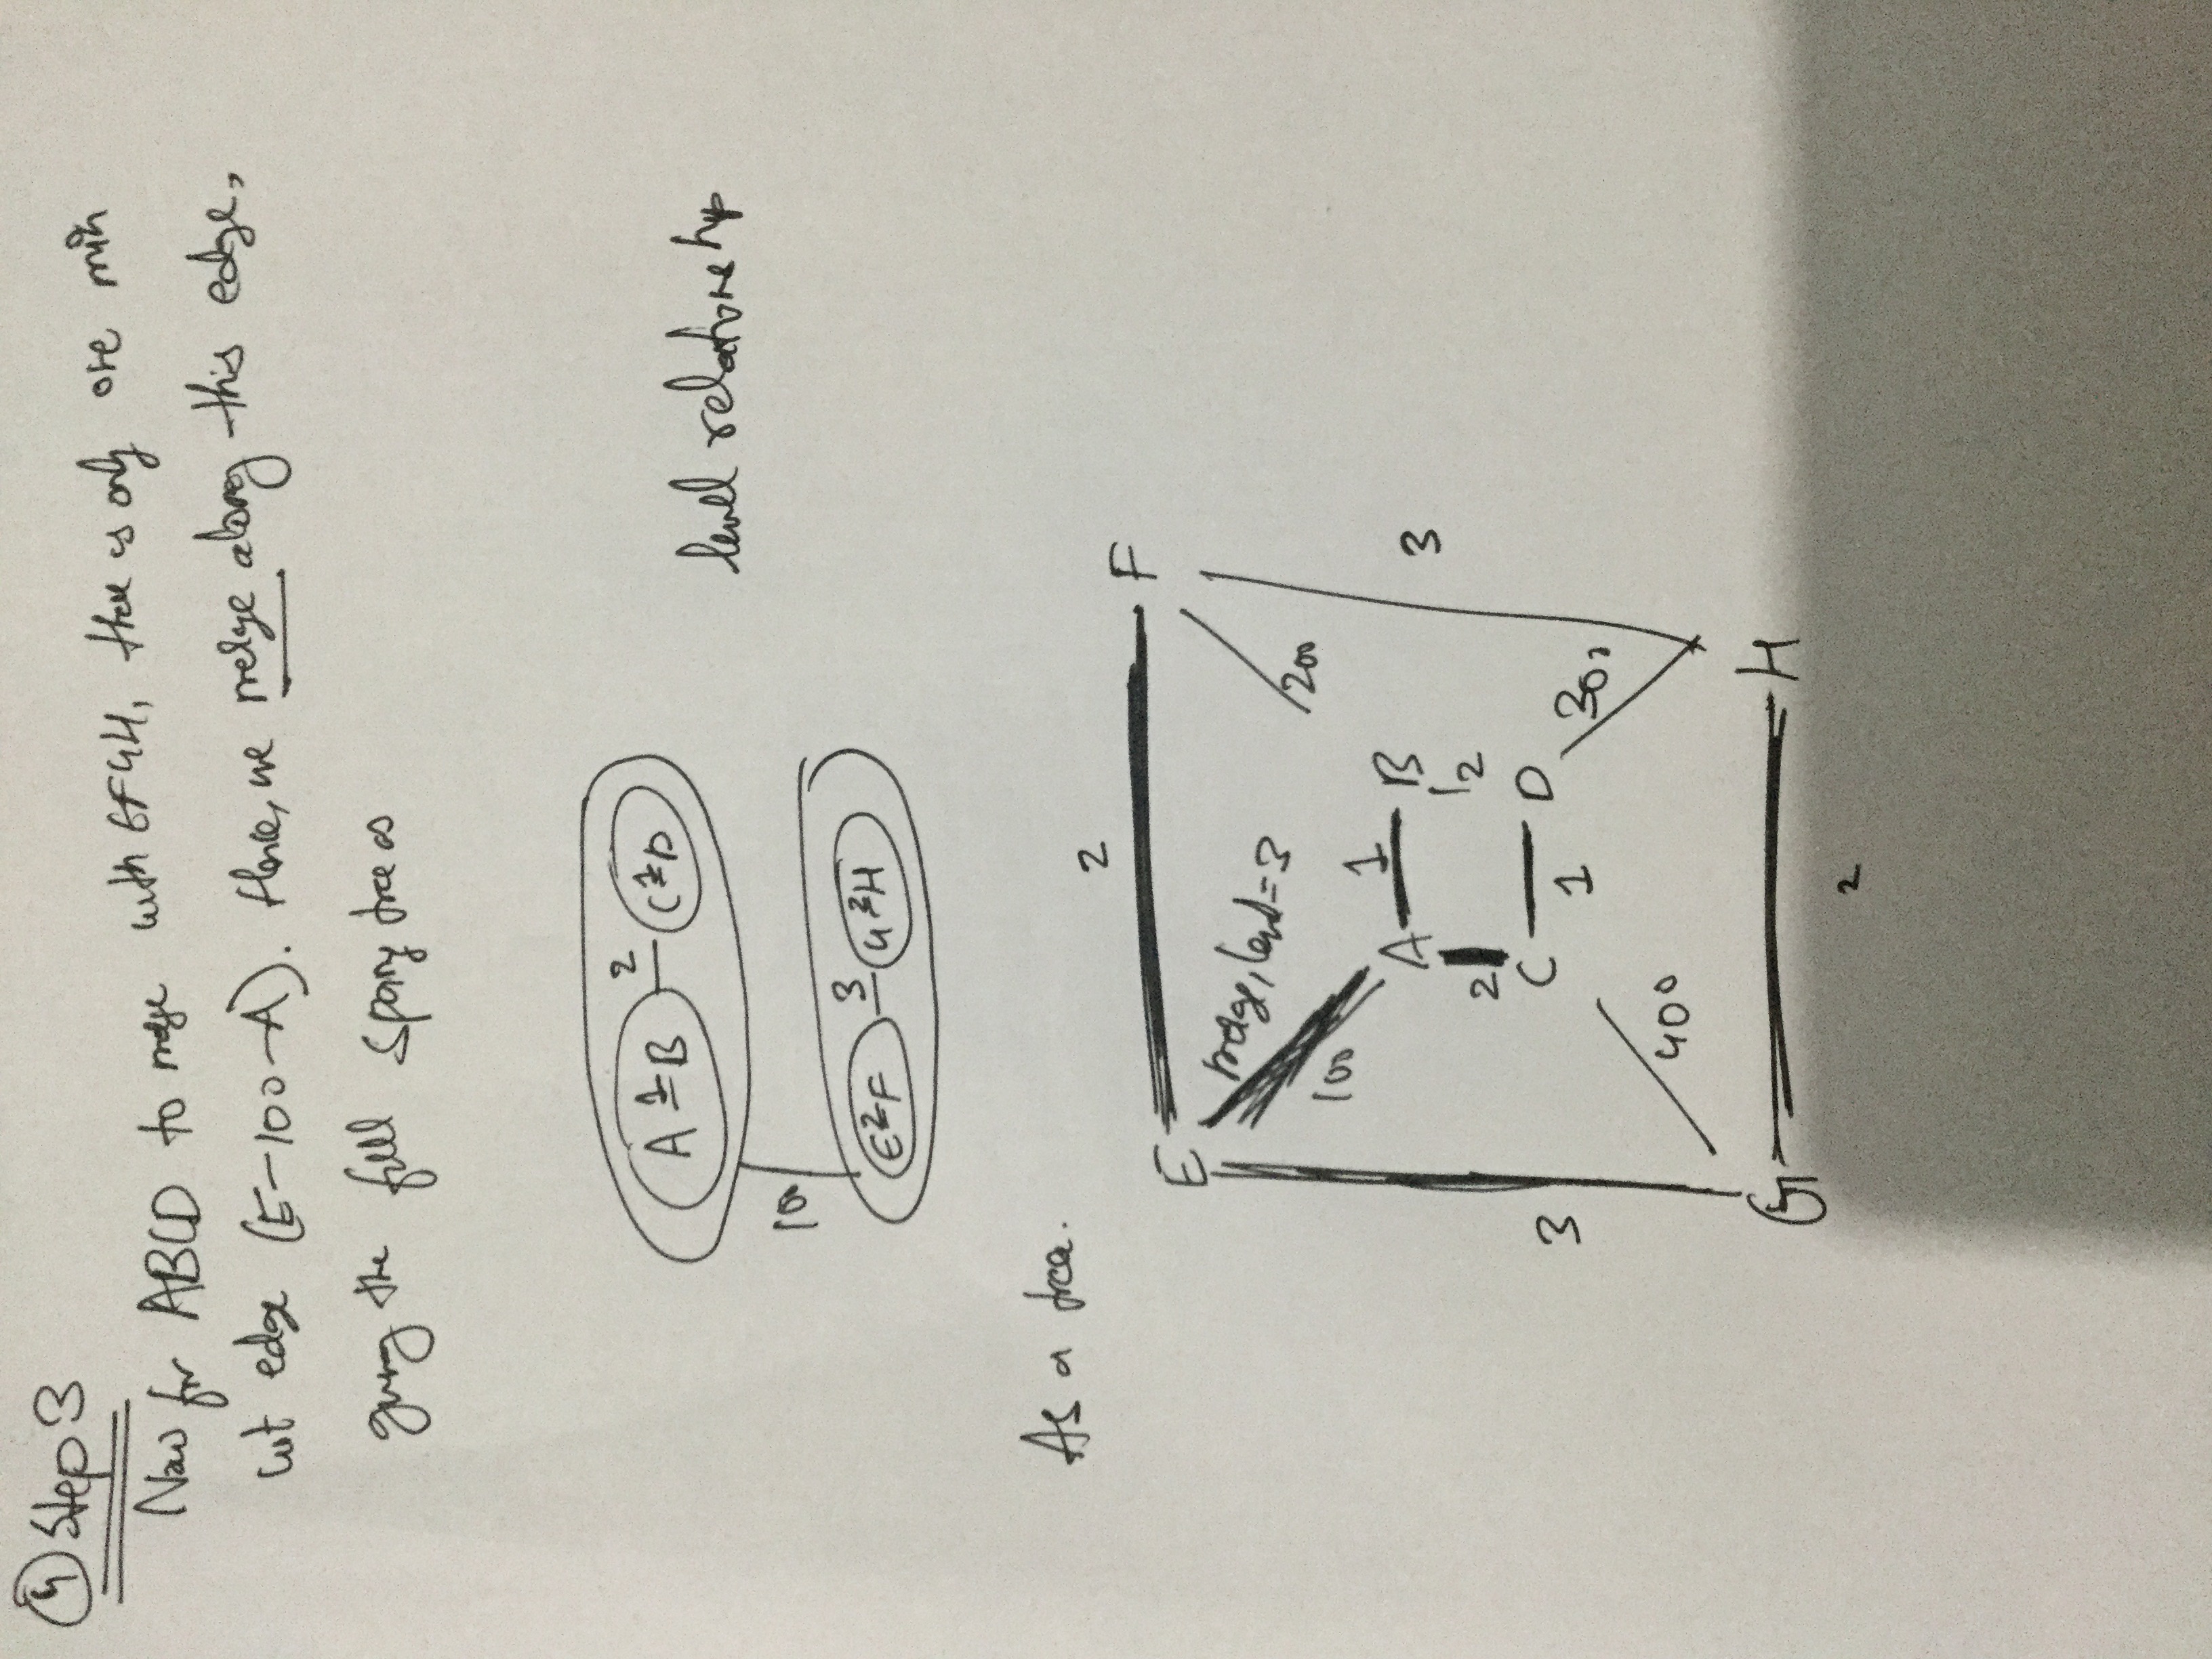 4 Step 3
Now for ABCD to merge with EFGH, there is only one min
cut edge (E-100-A). Hence, we merge along this edge,
giving the full spanning tree as
A 1 B 2 C 1 D
level relationship
100
E 2 F 3 G 2 H
As a tree.
2
E F
merge, level=3
100 200
A 1 B
3
2 2
C D
3 1 300
400
G H
2